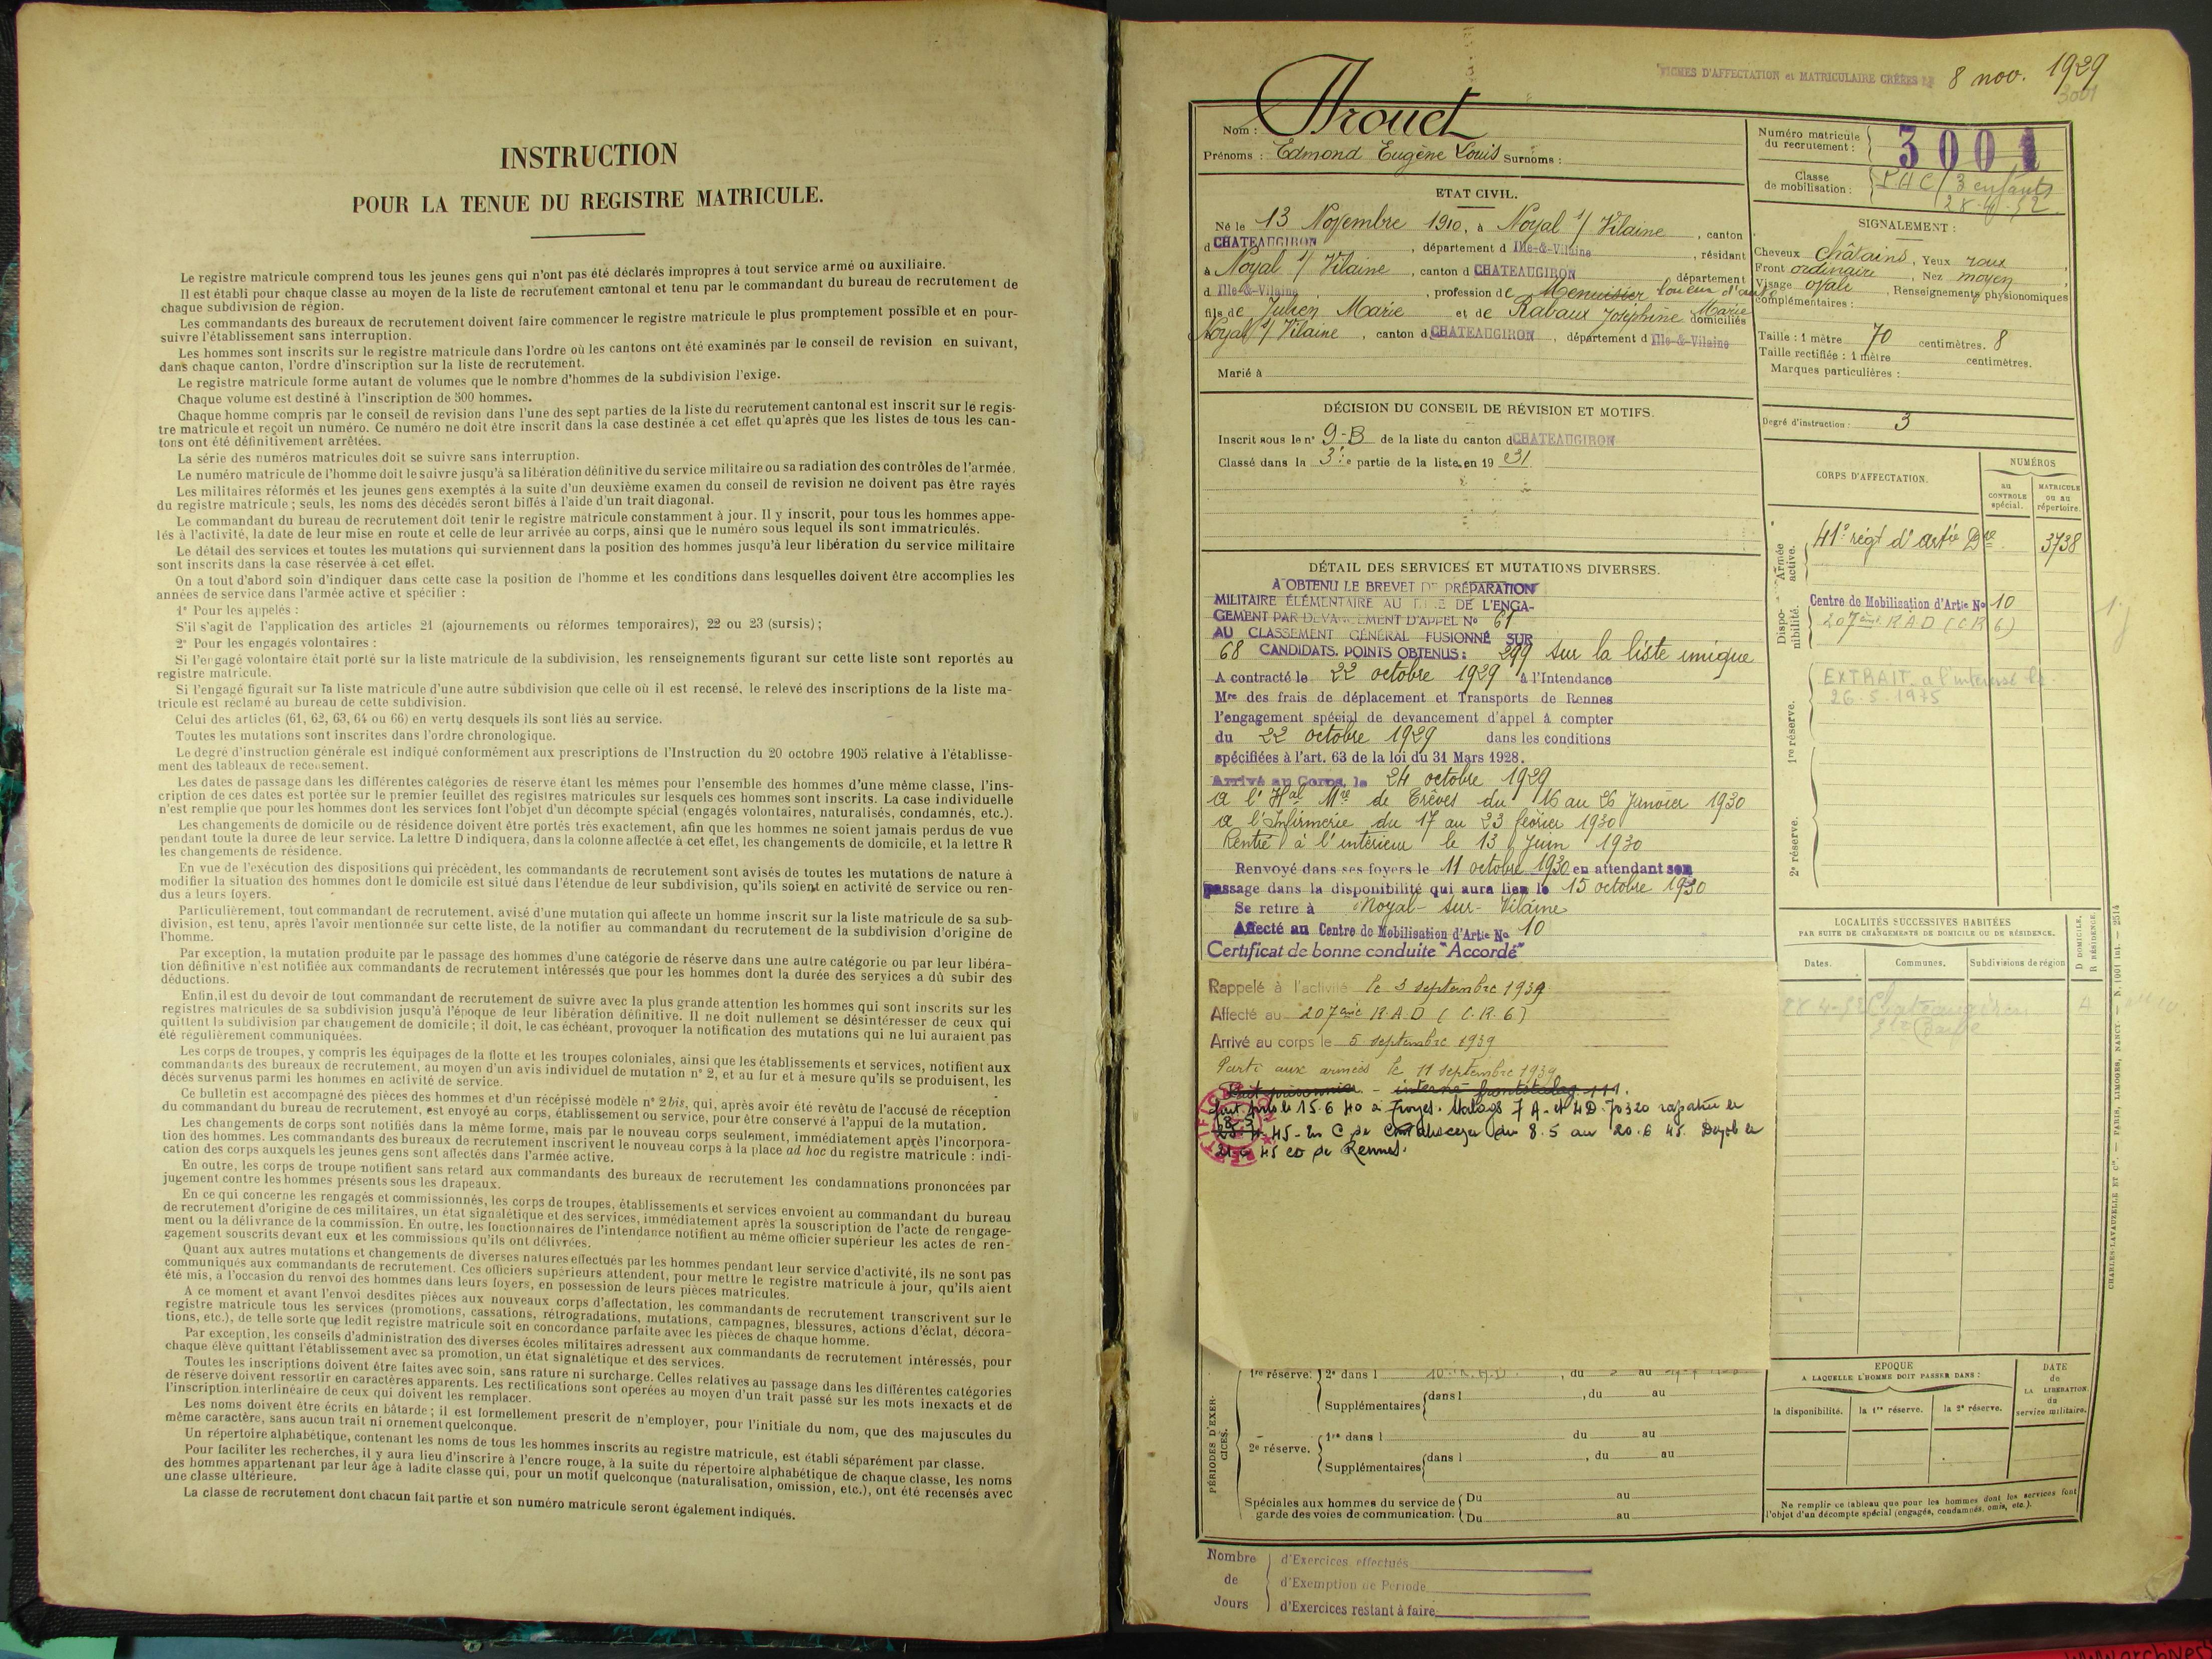 INSTRUCTION
POUR LA TENUE DU REGISTRE MATRICULE.
Le registre matricule comprend tous les jeunes gens qui n'ont pas été déclarés impropres à tout service armé ou auxiliaire.
Il est établi pour chaque classe au moyen de la liste de recrutement cantonal et tenu par le commandant du bureau de recrutement de
chaque subdivision de région.
Les commandants des bureaux de recrutement doivent faire commencer le registre matricule le plus promptement possible et en pour-
suivre l'établissement sans interruption.
Les hommes sont inscrits sur le registre matricule dans l'ordre où les cantons ont été examinés par le conseil de revision en suivant,
dans chaque canton, l'ordre d'inscription sur la liste de recrutement.
Le registre matricule forme autant de volumes que le nombre d'hommes de la subdivision l'exige.
Chaque volume est destiné à l'inscription de 500 hommes.
Chaque homme compris par le conseil de revision dans l'une des sept parties de la liste du recrutement cantonal est inscrit sur le regis-
tre matricule et reçoit un numéro. Ce numéro ne doit être inscrit dans la case destinée à cet effet qu'après que les listes de tous les can-
tons ont été définitivement arrêtées.
La série des numéros matricules doit se suivre sans interruption.
Le numéro matricule de l'homme doit le suivre jusqu'à sa libération définitive du service militaire ou sa radiation des contrôles de l'armée.
Les militaires réformés et les jeunes gens exemptés à la suite d'un deuxième examen du conseil de revision ne doivent pas être rayés
du registre matricule ; seuls, les noms des décédés seront biffés à l'aide d'un trait diagonal.
Le commandant du bureau de recrutement doit tenir le registre matricule constamment à jour. Il y inscrit, pour tous les hommes appe-
lés à l'activité, la date de leur mise en route et celle de leur arrivée au corps, ainsi que le numéro sous lequel ils sont immatriculés.
Le détail des services et toutes les mutations qui surviennent dans la position des hommes jusqu'à leur libération du service militaire
sont inscrits dans la case réservée à cet effet.
On a tout d'abord soin d'indiquer dans cette case la position de l'homme et les conditions dans lesquelles doivent être accomplies les
années de service dans l'armée active et spécifier :
1° Pour les appelés :
S'il s'agit de l'application des articles 21 (ajournements ou réformes temporaires), 22 ou 23 (sursis) ;
2° Pour les engagés volontaires :
Si l'engagé volontaire était porté sur la liste matricule de la subdivision, les renseignements figurant sur cette liste sont reportés au
registre matricule.
Si l'engagé figurait sur la liste matricule d'une autre subdivision que celle où il est recensé, le relevé des inscriptions de la liste ma-
tricule est réclamé au bureau de cette subdivision.
Celui des articles (61, 62, 63, 64 ou 66) en vertu desquels ils sont liés au service.
Toutes les mutations sont inscrites dans l'ordre chronologique.
Le degré d'instruction générale est indiqué conformément aux prescriptions de l'Instruction du 20 octobre 1905 relative à l'établisse-
ment des tableaux de recensement.
Les dates de passage dans les différentes catégories de réserve étant les mêmes pour l'ensemble des hommes d'une même classe, l'ins-
cription de ces dates est portée sur le premier feuillet des registres matricules sur lesquels ces hommes sont inscrits. La case individuelle
n'est remplie que pour les hommes dont les services font l'objet d'un décompte spécial (engagés volontaires, naturalisés, condamnés, etc.).
Les changements de domicile ou de résidence doivent être portés très exactement, afin que les hommes ne soient jamais perdus de vue
pendant toute la durée de leur service. La lettre D indiquera, dans la colonne affectée à cet effet, les changements de domicile, et la lettre R
les changements de résidence.
En vue de l'exécution des dispositions qui précèdent, les commandants de recrutement sont avisés de toutes les mutations de nature à
modifier la situation des hommes dont le domicile est situé dans l'étendue de leur subdivision, qu'ils soient en activité de service ou ren-
dus à leurs foyers.
Particulièrement, tout commandant de recrutement, avisé d'une mutation qui affecte un homme inscrit sur la liste matricule de sa sub-
division, est tenu, après l'avoir mentionnée sur cette liste, de la notifier au commandant du recrutement de la subdivision d'origine de
l'homme.
Par exception, la mutation produite par le passage des hommes d'une catégorie de réserve dans une autre catégorie ou par leur libéra-
tion définitive n'est notifiée aux commandants de recrutement intéressés que pour les hommes dont la durée des services a dû subir des
déductions.
Enfin, il est du devoir de tout commandant de recrutement de suivre avec la plus grande attention les hommes qui sont inscrits sur les
registres matricules de sa subdivision jusqu'à l'époque de leur libération définitive. Il ne doit nullement se désintéresser de ceux qui
quittent la subdivision par changement de domicile ; il doit, le cas échéant, provoquer la notification des mutations qui ne lui auraient pas
été régulièrement communiquées.
Les corps de troupes, y compris les équipages de la flotte et les troupes coloniales, ainsi que les établissements et services, notifient aux
commandants des bureaux de recrutement, au moyen d'un avis individuel de mutation n° 2, et au fur et à mesure qu'ils se produisent, les
décès survenus parmi les hommes en activité de service.
Ce bulletin est accompagné des pièces des hommes et d'un récépissé modèle n° 2 bis, qui, après avoir été revêtu de l'accusé de réception
du commandant du bureau de recrutement, est envoyé au corps, établissement ou service, pour être conservé à l'appui de la mutation.
Les changements de corps sont notifiés dans la même forme, mais par le nouveau corps seulement, immédiatement après l'incorpora-
tion des hommes. Les commandants des bureaux de recrutement inscrivent le nouveau corps à la place ad hoc du registre matricule : indi-
cation des corps auxquels les jeunes gens sont affectés dans l'armée active.
En outre, les corps de troupe notifient sans retard aux commandants des bureaux de recrutement les condamnations prononcées par
jugement contre les hommes présents sous les drapeaux.
En ce qui concerne les rengagés et commissionnés, les corps de troupes, établissements et services envoient au commandant du bureau
de recrutement d'origine de ces militaires, un état signalétique et des services, immédiatement après la souscription de l'acte de rengage-
ment ou la délivrance de la commission. En outre, les fonctionnaires de l'intendance notifient au même officier supérieur les actes de ren-
gagement souscrits devant eux et les commissions qu'ils ont délivrées.
Quant aux autres mutations et changements de diverses natures effectués par les hommes pendant leur service d'activité, ils ne sont pas
communiqués aux commandants de recrutement. Ces officiers supérieurs attendent, pour mettre le registre matricule à jour, qu'ils aient
été mis, à l'occasion du renvoi des hommes dans leurs foyers, en possession de leurs pièces matricules.
A ce moment et avant l'envoi desdites pièces aux nouveaux corps d'affectation, les commandants de recrutement transcrivent sur le
registre matricule tous les services (promotions, cassations, rétrogradations, mutations, campagnes, blessures, actions d'éclat, décora-
tions, etc.), de telle sorte que ledit registre matricule soit en concordance parfaite avec les pièces de chaque homme.
Par exception, les conseils d'administration des diverses écoles militaires adressent aux commandants de recrutement intéressés, pour
chaque élève quittant l'établissement avec sa promotion, un état signalétique et des services.
Toutes les inscriptions doivent être faites avec soin, sans rature ni surcharge. Celles relatives au passage dans les différentes catégories
de réserve doivent ressortir en caractères apparents. Les rectifications sont opérées au moyen d'un trait passé sur les mots inexacts et de
l'inscription interlinéaire de ceux qui doivent les remplacer.
Les noms doivent être écrits en bâtarde ; il est formellement prescrit de n'employer, pour l'initiale du nom, que des majuscules du
même caractère, sans aucun trait ni ornement quelconque.
Un répertoire alphabétique, contenant les noms de tous les hommes inscrits au registre matricule, est établi séparément par classe.
Pour faciliter les recherches, il y aura lieu d'inscrire à l'encre rouge, à la suite du répertoire alphabétique de chaque classe, les noms
des hommes appartenant par leur âge à ladite classe qui, pour un motif quelconque (naturalisation, omission, etc.), ont été recensés avec
une classe ultérieure.
La classe de recrutement dont chacun fait partie et son numéro matricule seront également indiqués.
FICHES D'AFFECTATION et MATRICULAIRE CRÉÉES LE 8 nov. 1929
3001
Nom : Arouet
Prénoms : Edmond Eugène Louis Surnoms :
Numéro matricule du recrutement : 3001
Classe de mobilisation : 3 enfants
ETAT CIVIL.
Né le 13 Novembre 1910, à Noyal s/ Vilaine, canton
d CHATEAUGIRON, département d Ille-&-Vilaine, résidant
à Noyal s/ Vilaine, canton d CHATEAUGIRON, département
d Ille-&-Vilaine, profession de Menuisier loueur d'auto
fils de Julien Marie et de Rabaux Joséphine Marie domiciliés
Noyal s/ Vilaine, canton d CHATEAUGIRON, département d Ille-&-Vilaine
Marié à
SIGNALEMENT :
Cheveux châtains, Yeux roux
Front ordinaire, Nez moyen
Visage ovale, Renseignements physionomiques
complémentaires :
Taille : 1 mètre 70 centimètres. 8
Taille rectifiée : 1 mètre centimètres.
Marques particulières :
Degré d'instruction : 3
DÉCISION DU CONSEIL DE RÉVISION ET MOTIFS.
Inscrit sous le n° 9-B de la liste du canton d CHATEAUGIRON
Classé dans la 3e partie de la liste en 1931
CORPS D'AFFECTATION.
NUMÉROS
au CONTROLE spécial.
MATRICULE ou au répertoire.
Armée active.
41e régt d'artie Dre 3738
Disponibilité.
Centre de Mobilisation d'Artie No 10
207ème R A D (C R 6)
1re réserve.
EXTRAIT a l'intéressé le
26.5.1975
2e réserve.
DÉTAIL DES SERVICES ET MUTATIONS DIVERSES.
A OBTENU LE BREVET DE PRÉPARATION
MILITAIRE ÉLÉMENTAIRE AU TITRE DE L'ENGA-
GEMENT PAR DEVANCEMENT D'APPEL No 61
AU CLASSEMENT GÉNÉRAL FUSIONNÉ SUR
68 CANDIDATS. POINTS OBTENUS : 299 sur la liste unique
A contracté le 22 octobre 1929 à l'Intendance
Mre des frais de déplacement et Transports de Rennes
l'engagement spécial de devancement d'appel à compter
du 22 octobre 1929 dans les conditions
spécifiées à l'art. 63 de la loi du 31 Mars 1928.
Arrivé au Corps, le 24 octobre 1929
A l'Hal Mre de Trêves du 16 au 26 Janvier 1930
A l'Infirmerie du 17 au 23 février 1930
Rentré à l'intérieur le 13 Juin 1930
Renvoyé dans ses foyers le 11 octobre 1930 en attendant son
passage dans la disponibilité qui aura lieu le 15 octobre 1930
Se retire à Noyal-sur-Vilaine
Affecté au Centre de Mobilisation d'Artie No 10
Certificat de bonne conduite "Accordé"
Rappelé à l'activité le 3 septembre 1939
Affecté au 207ème R.A.D (C.R.6)
Arrivé au corps le 5 septembre 1939
Parti aux armées le 11 septembre 1939
Fait prisonnier - interné frontstalag 111.
fait pris le 15.6 40 à Troyes. Stalags 7 A - et 4D. 70320 rapatrié le
45 - du 8.5 au 20.6 45. le
45 de Rennes.
LOCALITÉS SUCCESSIVES HABITÉES
PAR SUITE DE CHANGEMENTS DE DOMICILE OU DE RÉSIDENCE.
Dates.
Communes.
Subdivisions de région
D DOMICILE, R RÉSIDENCE.
28-4-52 Chateaugiron
CHARLES-LAVAUZELLE ET Cie. — PARIS, LIMOGES, NANCY.
PÉRIODES D'EXERCICES.
1re réserve. 2e dans l 10e R.A.D. , du au
Supplémentaires dans l , du au
2e réserve. 1re dans l du au
Supplémentaires dans l , du au
Spéciales aux hommes du service de garde des voies de communication. Du au
Du au
EPOQUE
A LAQUELLE L'HOMME DOIT PASSER DANS :
la disponibilité.
la 1re réserve.
la 2e réserve.
DATE de LA LIBERATION du service militaire.
Ne remplir ce tableau que pour les hommes dont les services font
l'objet d'un décompte spécial (engagés, condamnés, omis, etc.).
Nombre de Jours
d'Exercices effectués
d'Exemption de Periode
d'Exercices restant à faire